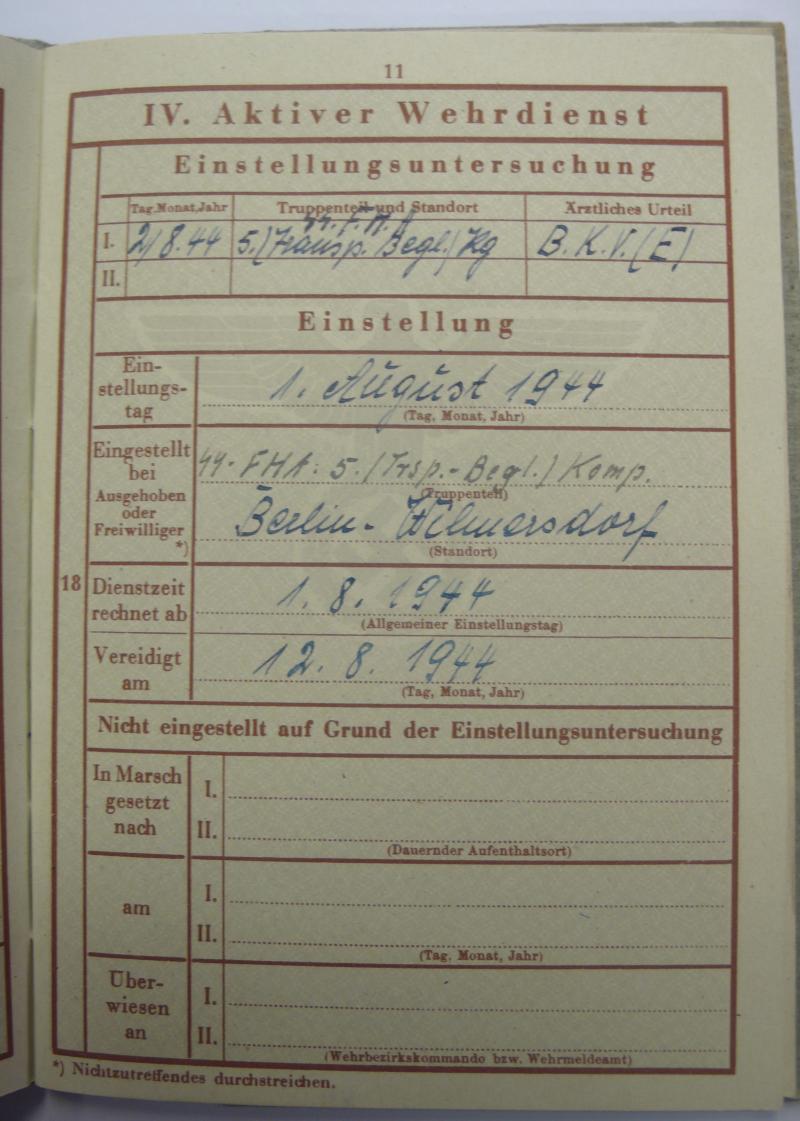 11
IV. Aktiver Wehrdienst
Einstellungsuntersuchung
Tag, Monat, Jahr Truppenteil und Standort Ärztliches Urteil
I. 2/8.44 5.(Transp. Begl.) Kg B.K.V.(E)
II.
Einstellung
Ein-
stellungs-
tag
1. August 1944
(Tag, Monat, Jahr)
Eingestellt
bei
Ausgehoben
oder
Freiwilliger
*)
44- FHA. 5. (Trsp.-Begl.) Komp.
(Truppenteil)
Berlin-Wilmersdorf
(Standort)
18
Dienstzeit
rechnet ab
1. 8. 1944
(Allgemeiner Einstellungstag)
Vereidigt
am
12. 8. 1944
(Tag, Monat, Jahr)
Nicht eingestellt auf Grund der Einstellungsuntersuchung
In Marsch
gesetzt
nach
I.
II.
(Dauernder Aufenthaltsort)
am
I.
II.
(Tag, Monat, Jahr)
Über-
wiesen
an
I.
II.
(Wehrbezirkskommando bzw. Wehrmeldeamt)
*) Nichtzutreffendes durchstreichen.